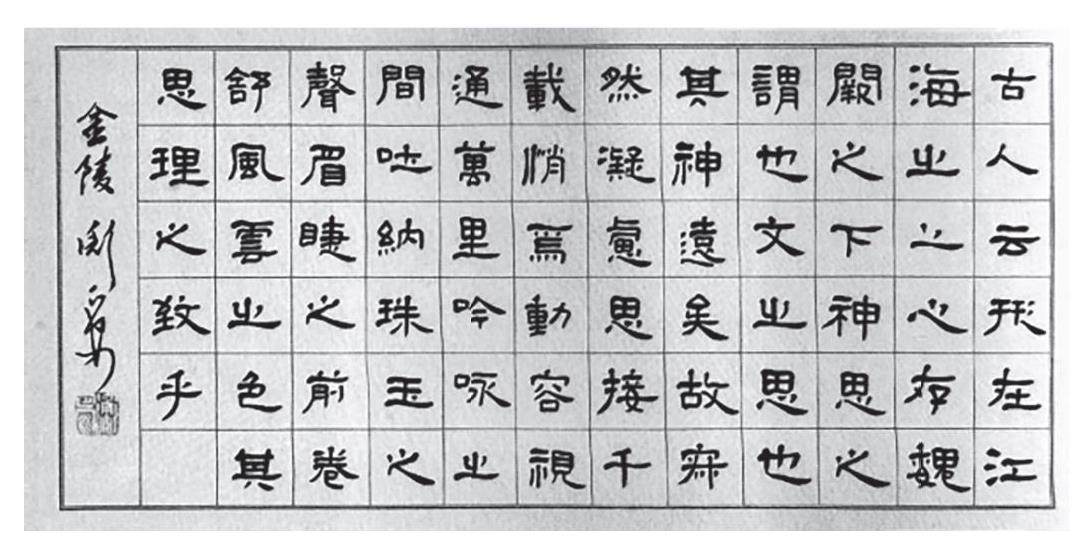 古人云形在江
海之上心存魏
闕之下神思之
謂也文之思也
其神遠矣故寂
然凝慮思接千
載悄焉動容視
通萬里吟咏之
間吐納珠玉之
聲眉睫之前卷
舒風雲之色其
思理之致乎
金陵